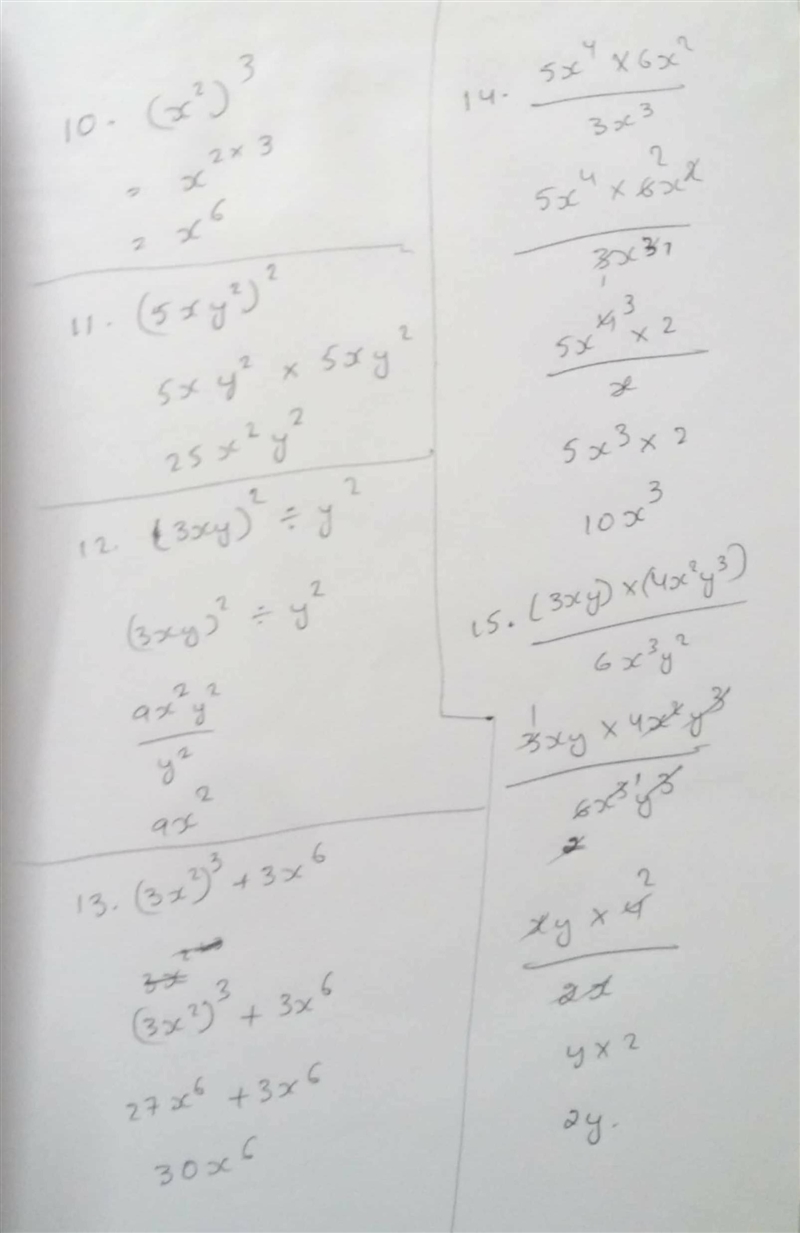 10. (x²)³
= x^{2×3}
= x⁶
11. (5xy²)²
5xy² × 5xy²
25x²y²
12. (3xy)² ÷ y²
(3xy)² ÷ y²
9x²y²
y²
9x²
13. (3x²)³ + 3x⁶
(3x²)³ + 3x⁶
27x⁶ + 3x⁶
30x⁶
14. 5x⁴ × 6x²
3x³
2
5x⁴ × 6x²
3x³ 1
1
3
5x⁴ × 2
x
5x³ × 2
10x³
15. (3xy) × (4x²y³)
6x³y²
1
3xy × 4x²y³
6x³ ¹y³
2
2
xy × 4
2x
y × 2
2y.